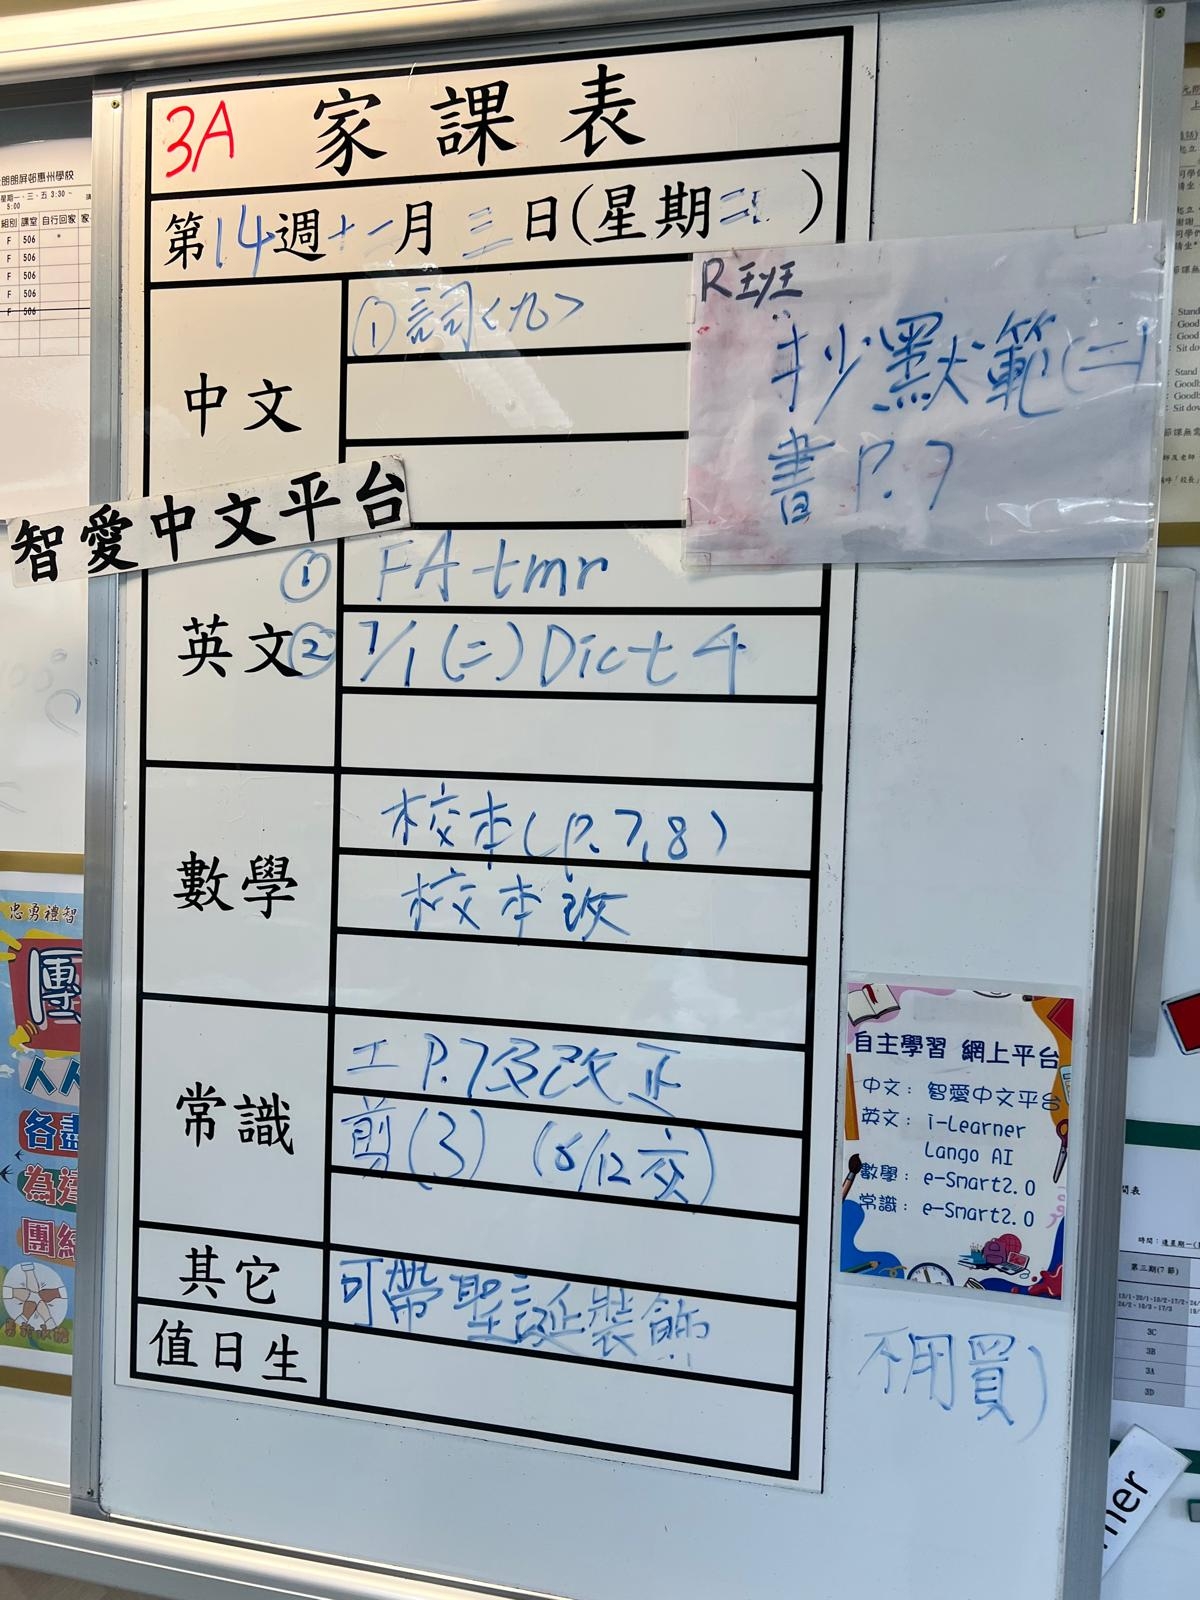 3A 家課表
第14週十一月三日(星期二)
中文
①詞<九>
R班
抄默範(二)
書P.7
智愛中文平台
英文
① FA tmr
② 7/1(二) Dict 4
數學
校本(P.7,8)
校本改
常識
工P.7及改正
剪(3) (8/12交)
其它
可帶聖誕裝飾
不用買)
值日生
自主學習 網上平台
中文：智愛中文平台
英文：i-Learner
Lango AI
數學：e-Smart2.0
常識：e-Smart2.0
朗屏邨惠州學校
星期一、三、五 3:30 ~
5:00
組別 課室 自行回家
F 506
F 506
F 506
F 506
F 506
忠勇禮智
團
各盡
團結
時間：逢星期一
第三期(7節)
3C
3B
3A
3D